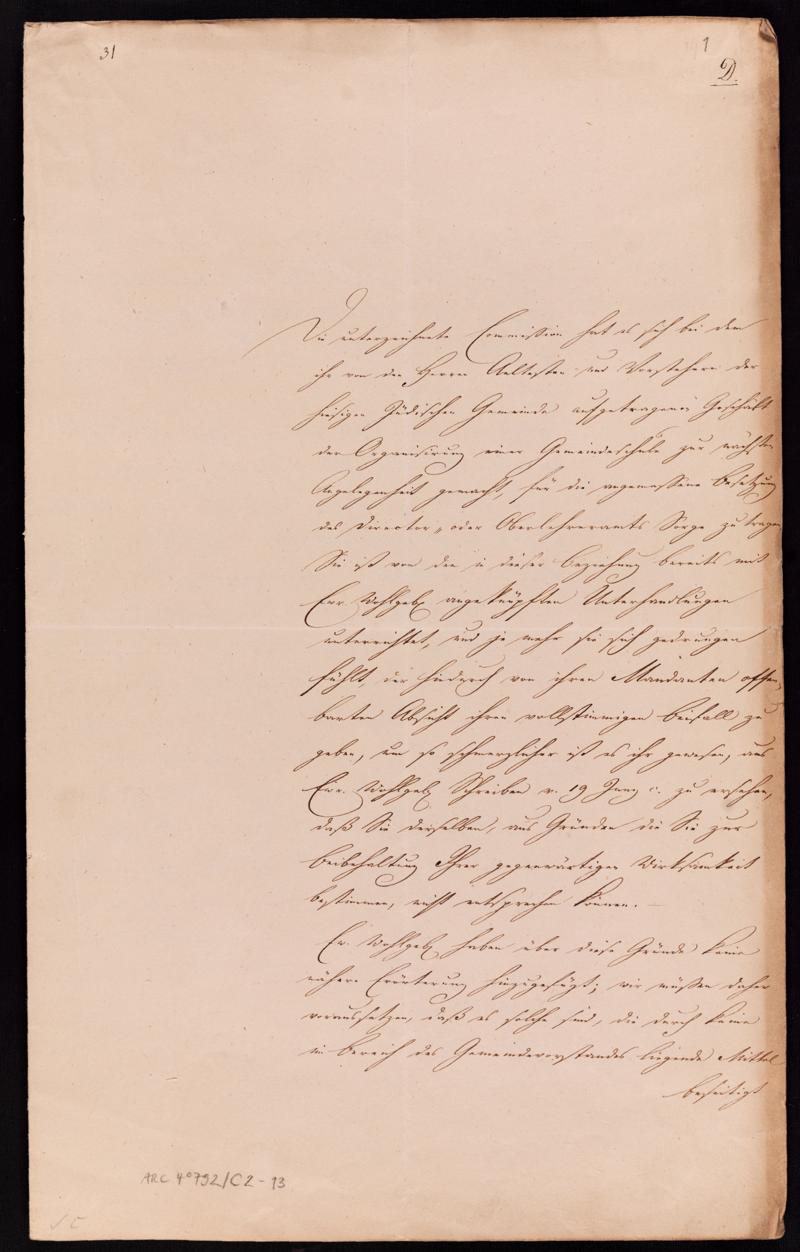 31
1
D.
Die unterzeichnete Commission hat es sich bei dem
ihr von den Herren Aeltesten und Vorstehern der
hiesigen Jüdischen Gemeinde aufgetragenen Geschäft
der Organisirung einer Gemeindeschule zur nächsten
Angelegenheit gemacht, für die angemessene Besetzung
des Director- oder Oberlehreramts Sorge zu tragen
Sie ist von den in dieser Beziehung bereits mit
Ewr. Wohlgeb angeknüpften Unterhandlungen
unterrichtet, und je mehr sie sich gedrungen
fühlt, der hiedurch von ihren Mandanten offen
barten Absicht ihren vollstimmigen Beifall zu
geben, um so schmerzlicher ist es ihr gewesen, aus
Ewr. Wohlgeb Schreiben v. 19 Juny c. zu ersehen,
daß Sie derselben, aus Gründen die Sie zur
Beibehaltung Ihrer gegenwärtigen Wirksamkeit
bestimmen, nicht entsprechen können. —
Ew. Wohlgeb haben über diese Gründe keine
nähere Erörterung hinzugefügt; wir müßen daher
voraussetzen, daß es solche sind, die durch keine
im Bereich des Gemeindevorstandes liegende Mittel
beseitigt
ARC 4° 792/C2-13